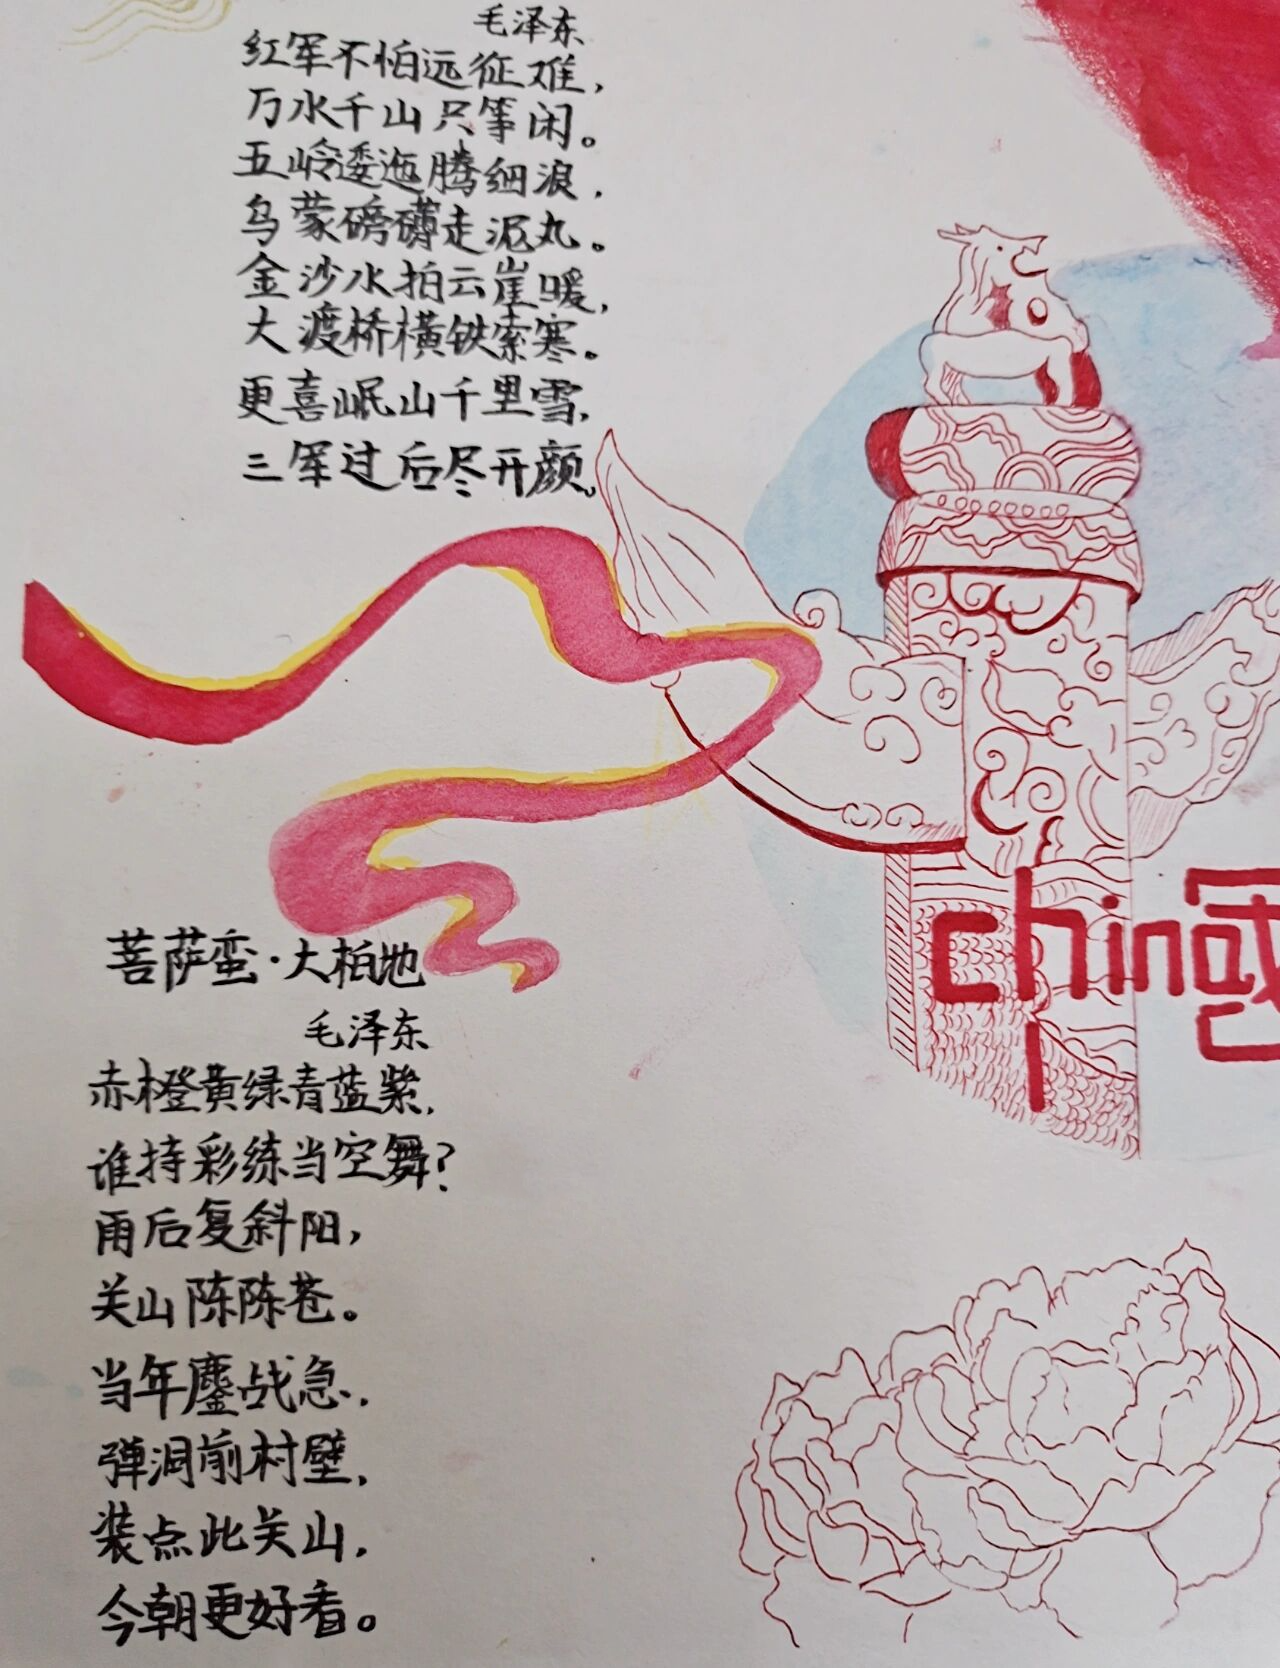 毛泽东
红军不怕远征难，
万水千山只等闲。
五岭逶迤腾细浪，
乌蒙磅礴走泥丸。
金沙水拍云崖暖，
大渡桥横铁索寒。
更喜岷山千里雪，
三军过后尽开颜。
chin国
菩萨蛮·大柏地
毛泽东
赤橙黄绿青蓝紫，
谁持彩练当空舞？
雨后复斜阳，
关山陈陈苍。
当年鏖战急，
弹洞前村壁，
装点此关山，
今朝更好看。